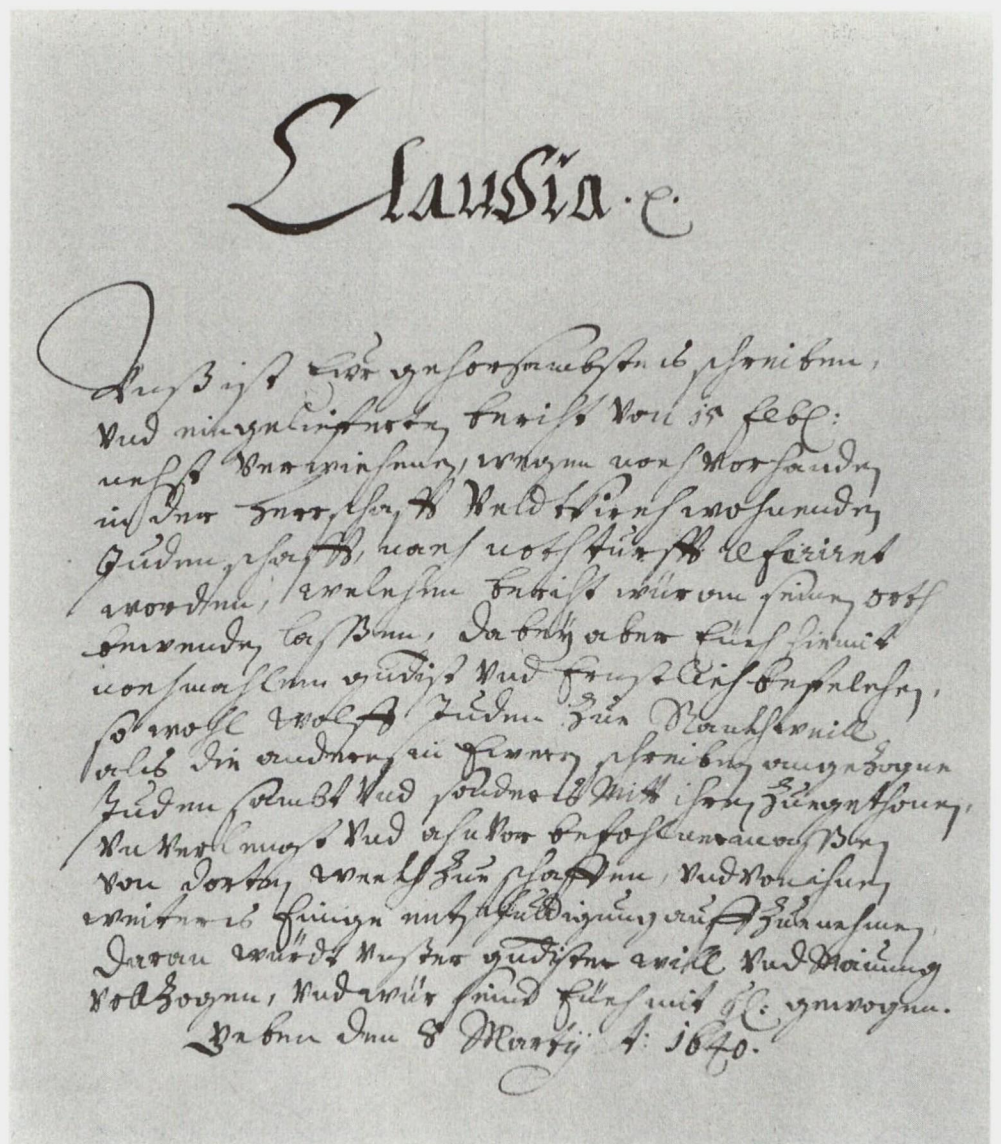 Claudia. x.
Unß ist Eur gehorsambsteis schreiben,
Vnd eingelifferten bericht Von 15 Feb:
nehst Verwichenen, wegen noch Vorhanden
in der Herrschafft Veldtkirch wohnenden
Judenschafft, nach notturfft referiret
worden, welchen bericht wür an seinen orth
bewenden laßßen, dabey aber Euch hiemit
nochmahlen gndist Vnd Ernstlich befelchen,
so wohl Wolff Juden zue Rankhweill
als die anderen in Eweren schreiben angezogne
Juden sambt Vnd sonders Mitt ihren zuegethonen,
Vnverlengst Vnd ahnvor befohlnermaßßen
von dorten weckh zue schaffen, Vnd Von ihnen
weiters Einige entschuldigung auff zuenehmen,
Daran würdt Vnßer gndister will Vnd Mainung
Vollzogen, Vnd wür seind Euch mit gewogen.
Geben den 8 Martÿ A: 1640.